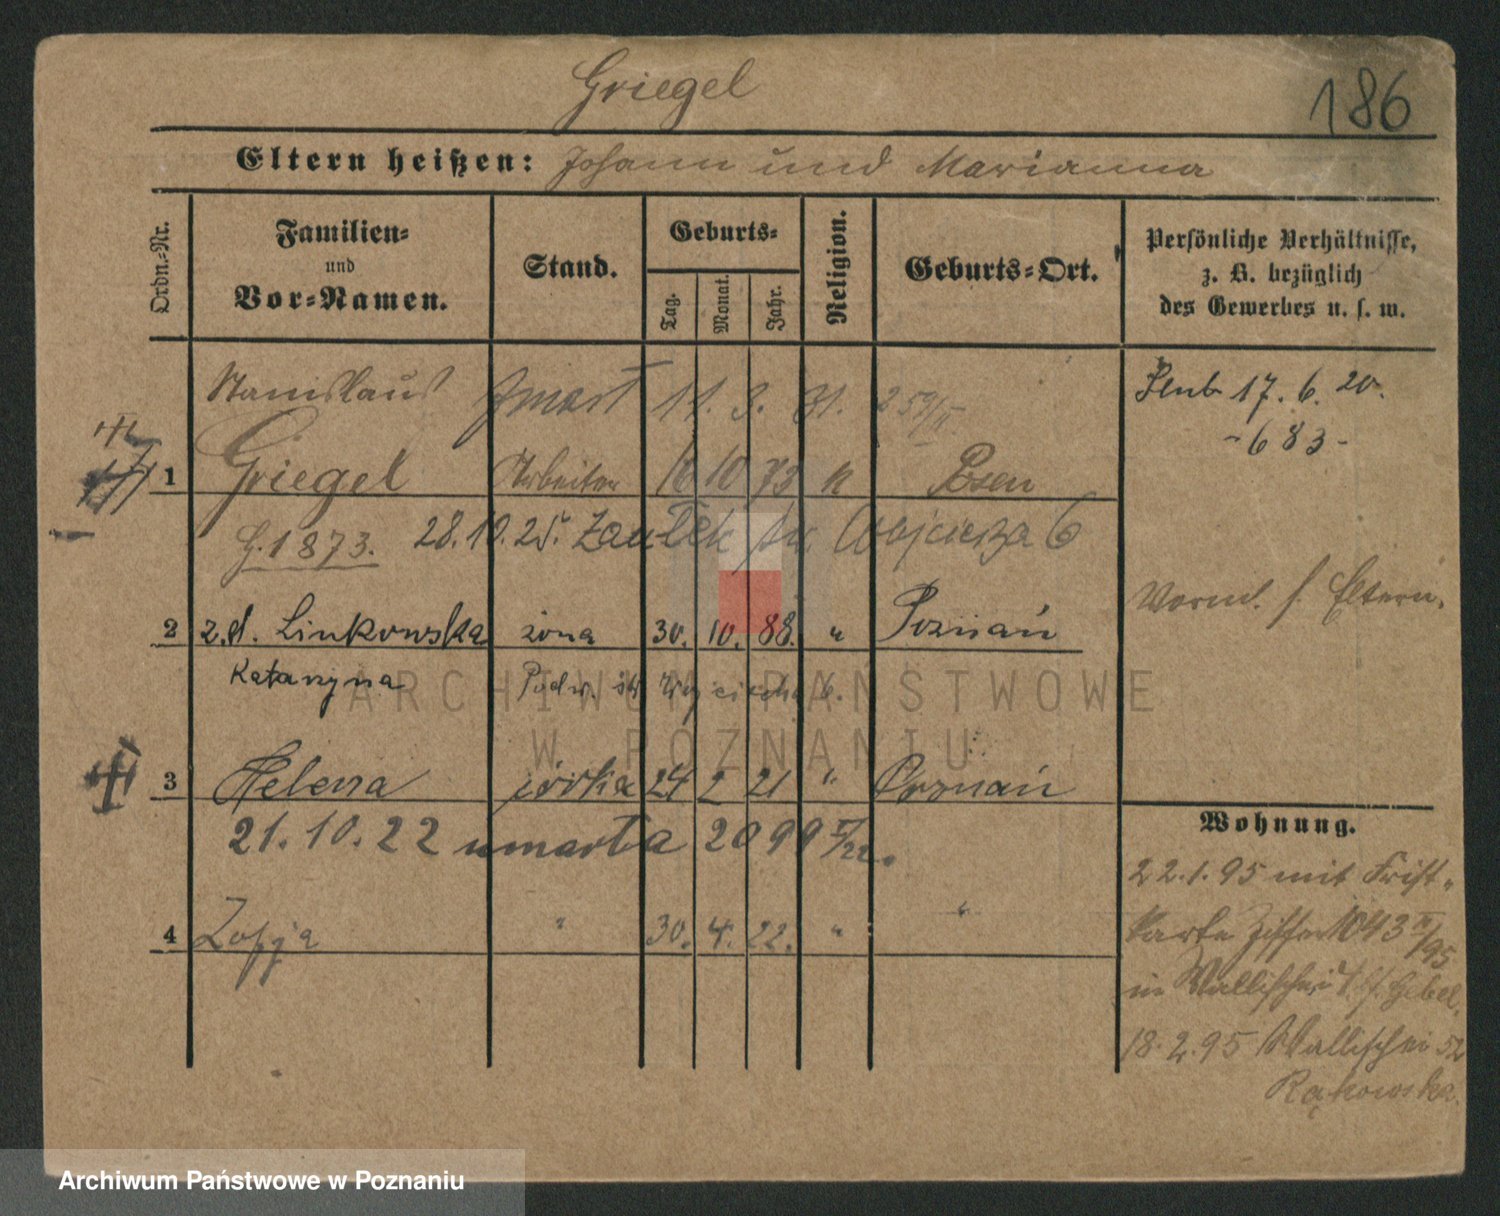 Griegel
186
Eltern heißen: Johann und Marianna
Ordn.-Nr.
Familien- und Vor-Namen.
Stand.
Geburts-
Tag.
Monat.
Jahr.
Religion.
Geburts-Ort.
Persönliche Verhältnisse,
z. B. bezüglich
des Gewerbes u. s. w.
Stanislaus zmarł 11. 3. 31.
1 Griegel Arbeiter 16 10 73 k Posen
G. 1873. 28.10.25. Zaułek św. Wojciecha 6
2 z.d. Linkowska żona 30. 10. 88. " Poznań
Katarzyna Podw. św Wojciecha 6.
3 Helena córka 24 2 21 " Poznań
21.10.22 umarła 2099
4 Zofja " 30. 4. 22. " "
Ślub 17. 6. 20.
- 683 -
Vorml. s. Eltern.
Wohnung.
22.1.95 mit Frist-
karte Ziffer 1043
in Wallischei
18.2.95 Wallischei 52
Rąkowska.
ARCHIWUM PAŃSTWOWE
W POZNANIU
Archiwum Państwowe w Poznaniu